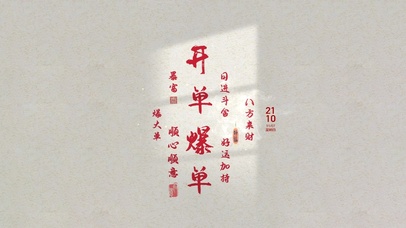 八方来财
日进斗金
好运加持
开单爆单
暴富
顺心顺意
爆大单
21
10